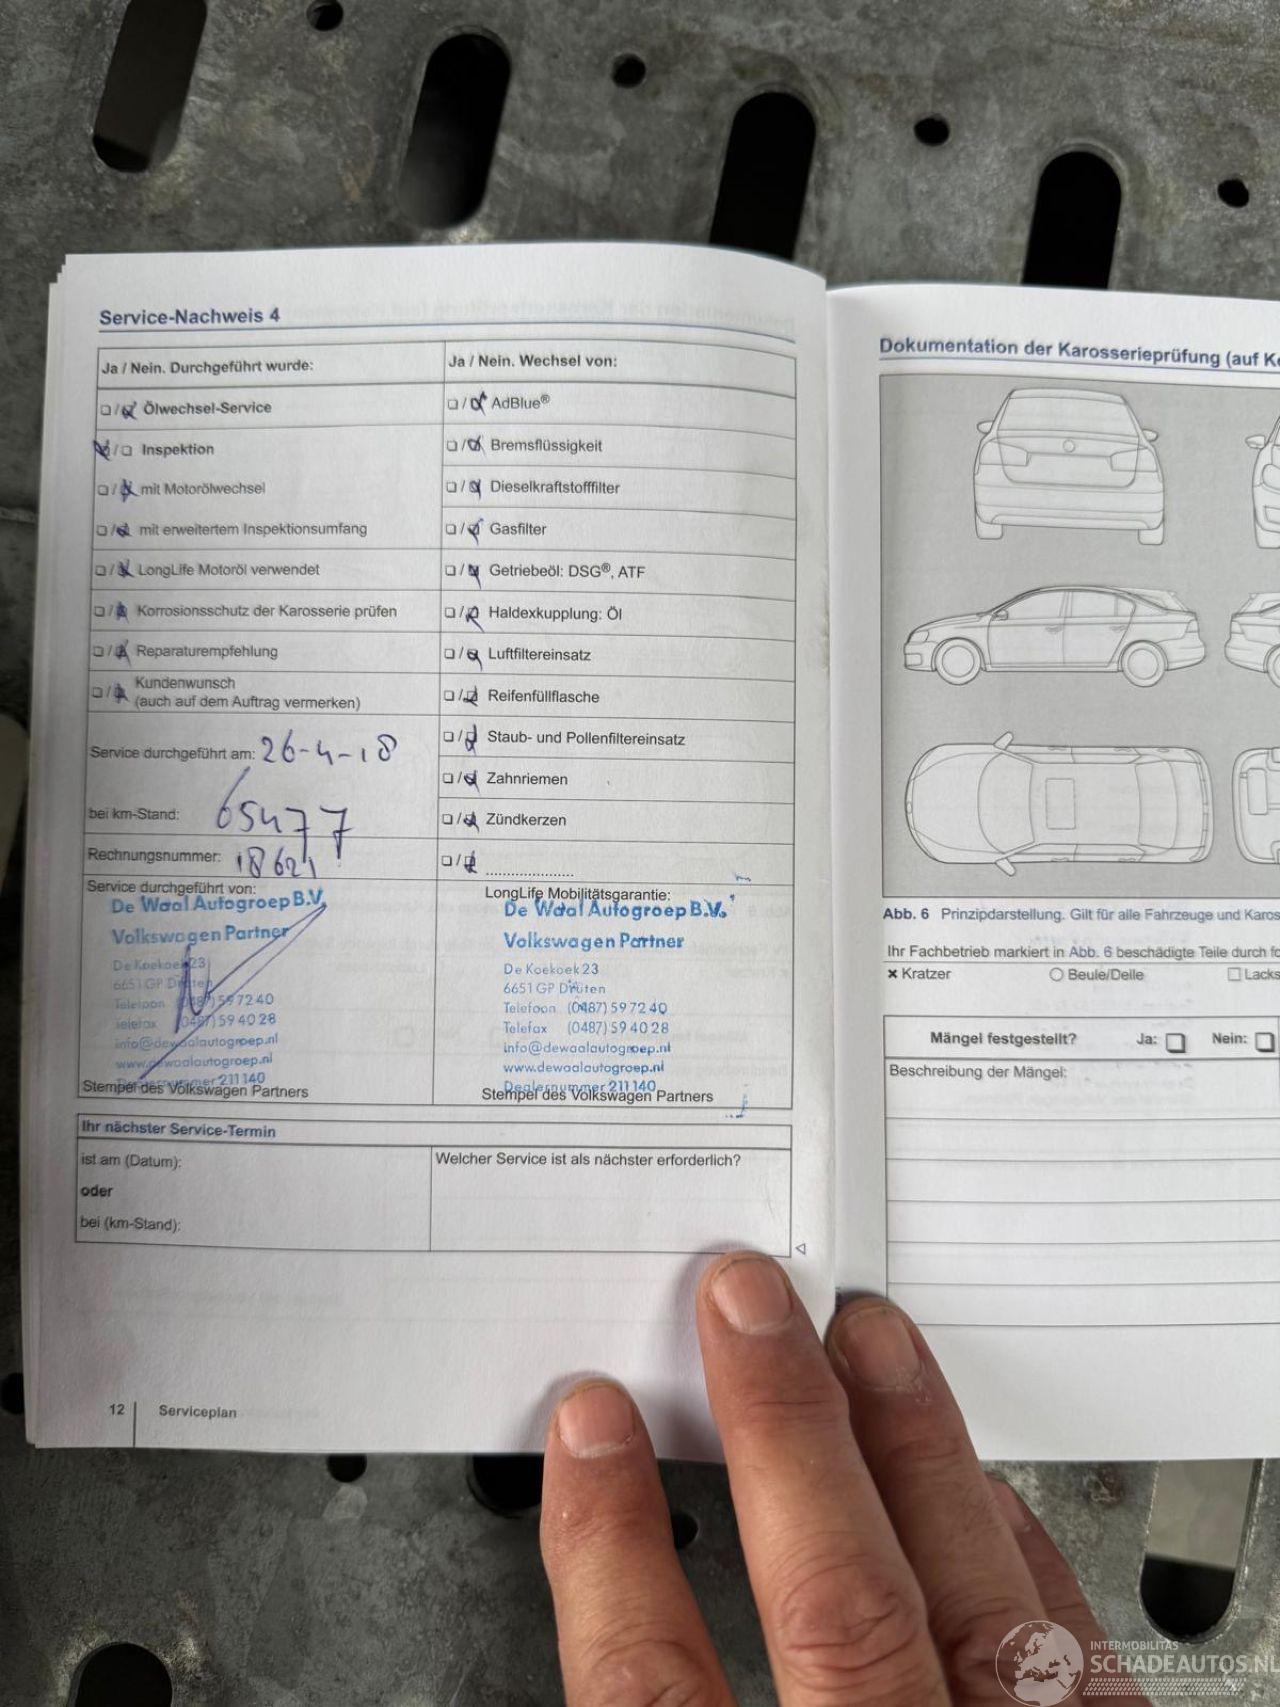 Service-Nachweis 4
Ja / Nein. Durchgeführt wurde:
☐ / ☒ Ölwechsel-Service
☒ / ☐ Inspektion
☐ / ☒ mit Motorölwechsel
☐ / ☒ mit erweitertem Inspektionsumfang
☐ / ☒ LongLife Motoröl verwendet
☐ / ☒ Korrosionsschutz der Karosserie prüfen
☐ / ☒ Reparaturempfehlung
☐ / ☒ Kundenwunsch
(auch auf dem Auftrag vermerken)
Service durchgeführt am: 26-4-18
bei km-Stand: 65477
Rechnungsnummer: 18621
Ja / Nein. Wechsel von:
☐ / ☒ AdBlue®
☐ / ☒ Bremsflüssigkeit
☐ / ☒ Dieselkraftstofffilter
☐ / ☒ Gasfilter
☐ / ☒ Getriebeöl: DSG®, ATF
☐ / ☒ Haldexkupplung: Öl
☐ / ☒ Luftfiltereinsatz
☐ / ☒ Reifenfüllflasche
☐ / ☒ Staub- und Pollenfiltereinsatz
☐ / ☒ Zahnriemen
☐ / ☒ Zündkerzen
☐ / ☒ ......................
Service durchgeführt von:
De Waal Autogroep B.V.
Volkswagen Partner
De Koekoek 23
6651 GP Druten
Telefoon (0487) 59 72 40
Telefax (0487) 59 40 28
info@dewaalautogroep.nl
www.dewaalautogroep.nl
Dealernummer 211 140
Stempel des Volkswagen Partners
LongLife Mobilitätsgarantie:
De Waal Autogroep B.V.
Volkswagen Partner
De Koekoek 23
6651 GP Druten
Telefoon (0487) 59 72 40
Telefax (0487) 59 40 28
info@dewaalautogroep.nl
www.dewaalautogroep.nl
Dealernummer 211 140
Stempel des Volkswagen Partners
Ihr nächster Service-Termin
ist am (Datum):
oder
bei (km-Stand):
Welcher Service ist als nächster erforderlich?
12 Serviceplan
Dokumentation der Karosserieprüfung (auf
Abb. 6 Prinzipdarstellung. Gilt für alle Fahrzeuge und
Ihr Fachbetrieb markiert in Abb. 6 beschädigte Teile durch
× Kratzer ○ Beule/Delle ☐
Mängel festgestellt? Ja: ☐ Nein: ☐
Beschreibung der Mängel:
INTERMOBILITAS
SCHADEAUTOS.NL